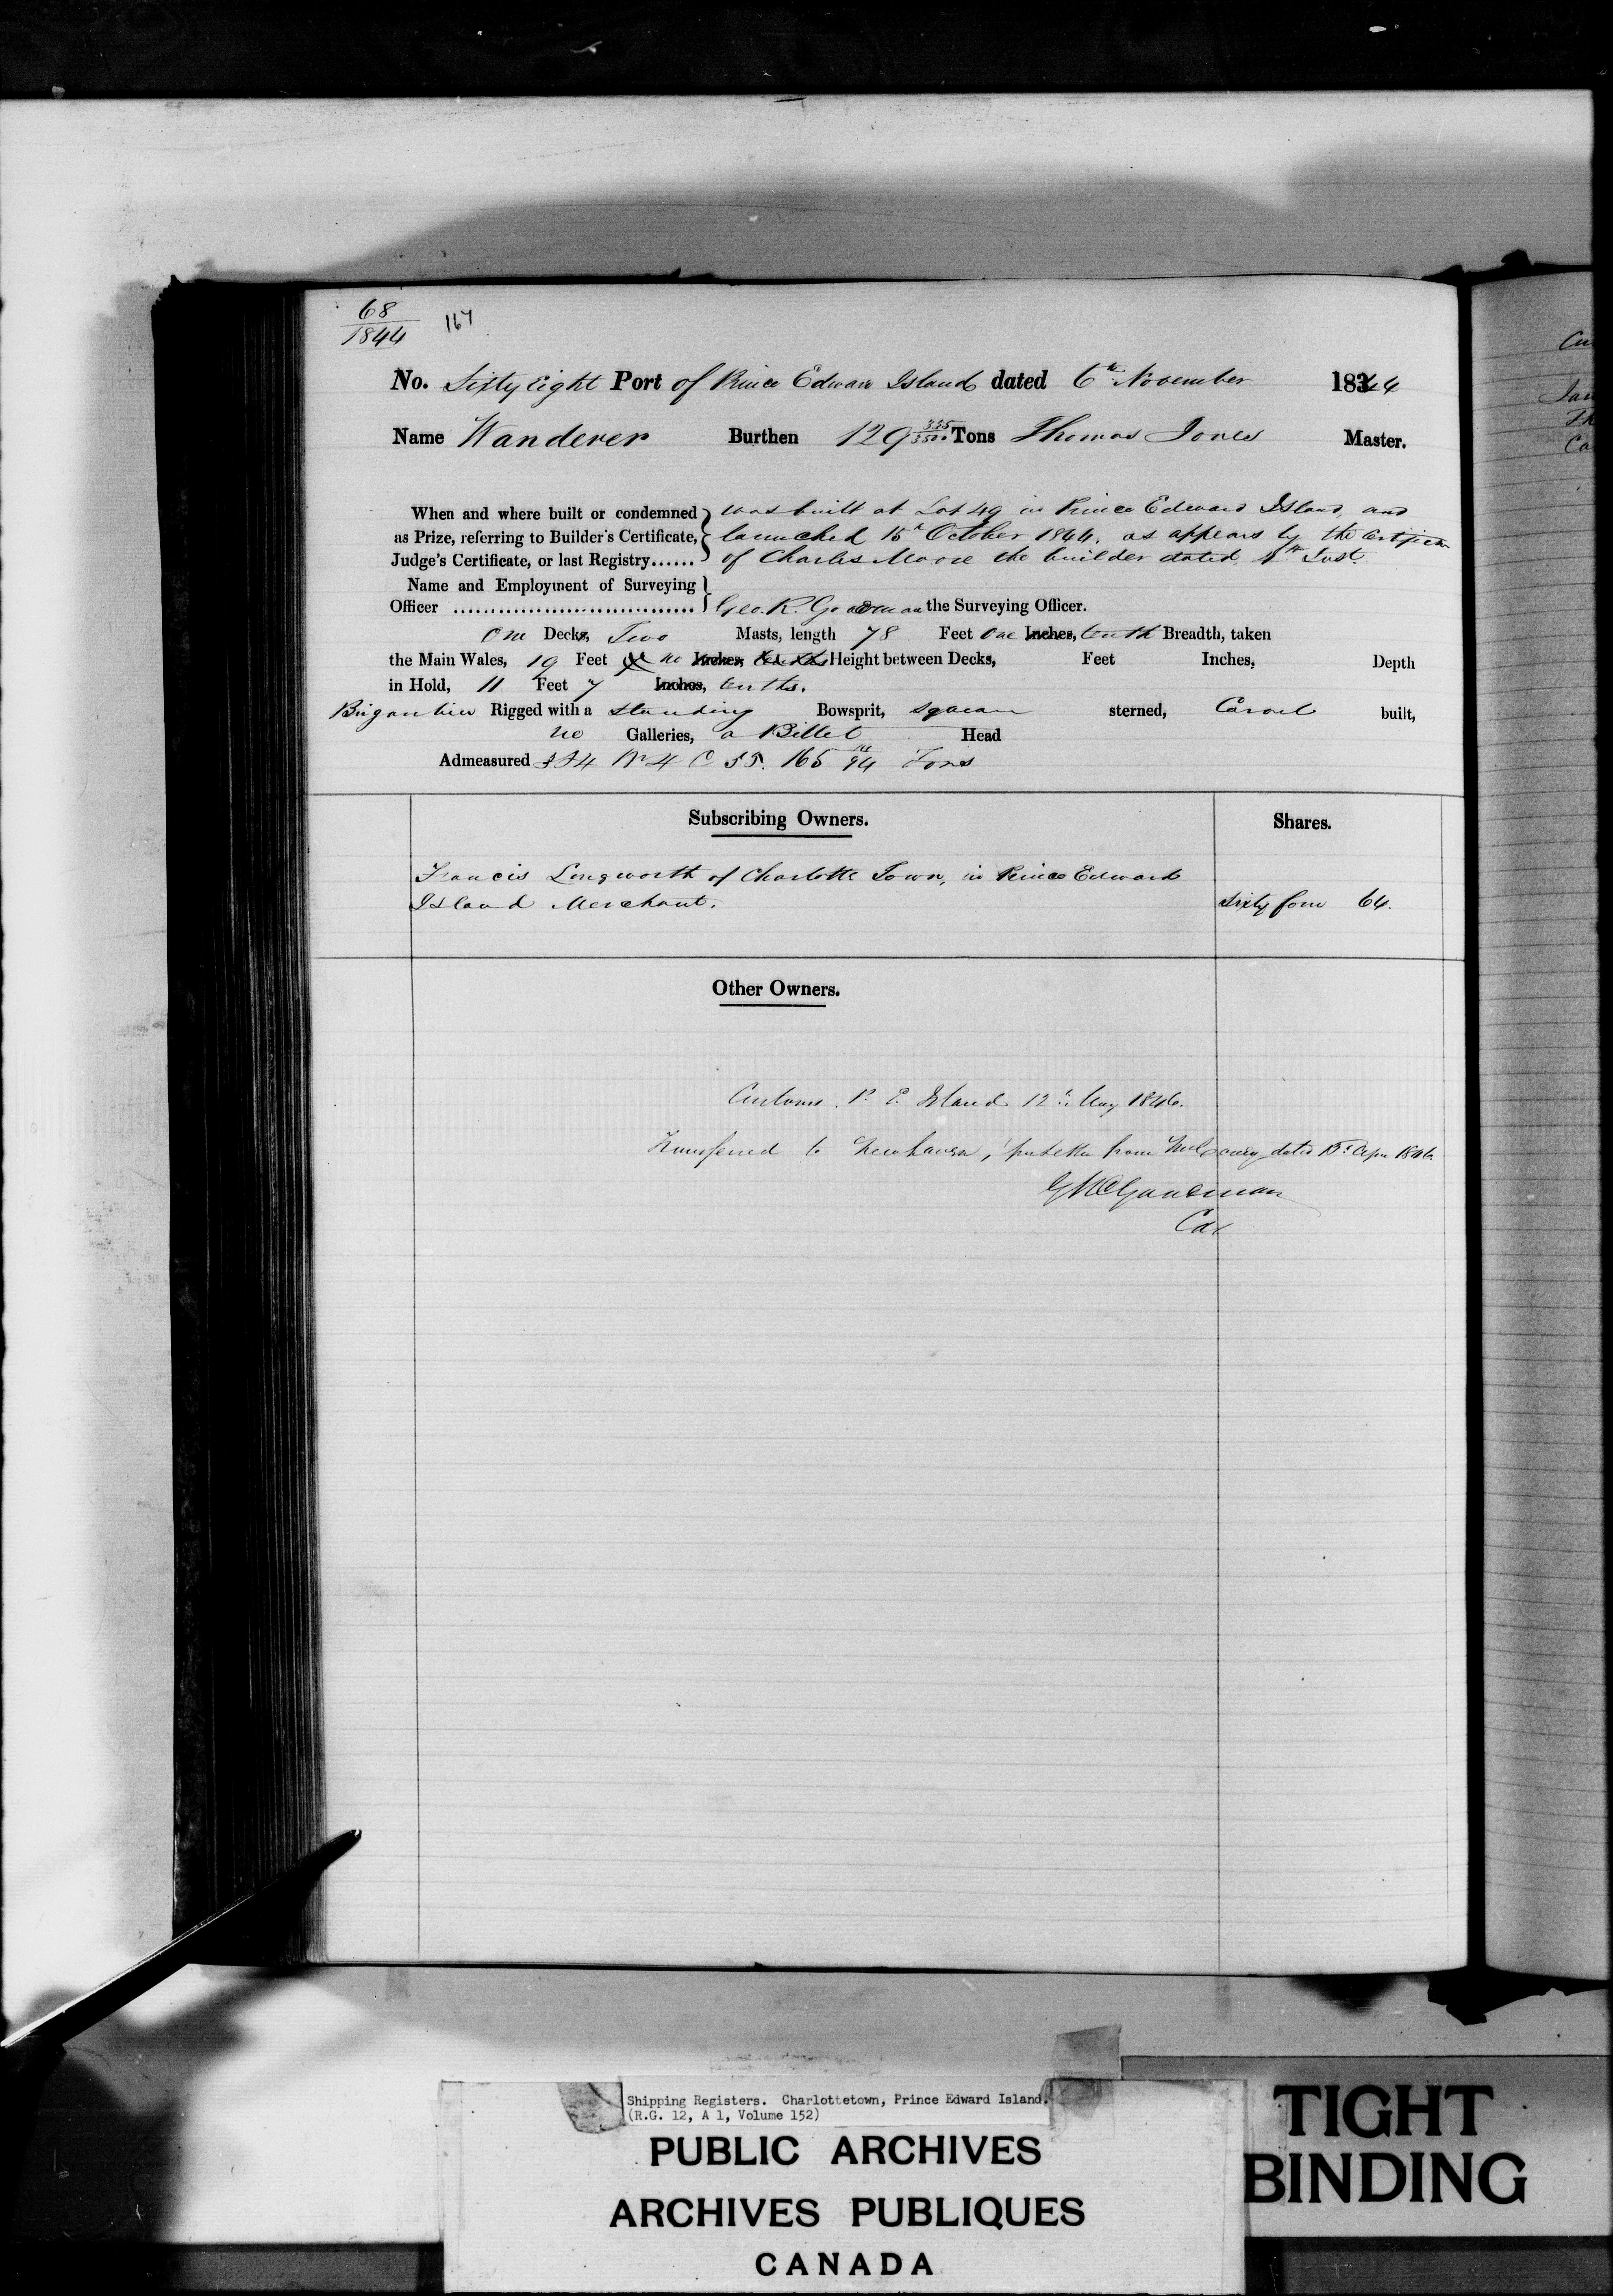 68
1844
167
No. Sixty Eight Port of Prince Edward Island dated 6th November 1844
Name Wanderer Burthen 129 335/3500 Tons Thomas Jones Master.
When and where built or condemned as Prize, referring to Builder's Certificate, Judge's Certificate, or last Registry......
was built at Lot 49 in Prince Edward Island, and
launched 15th October 1844. as appears by the Certificate
of Charles Moore the builder dated Inst.
Name and Employment of Surveying
Officer ................................ Geo. R. Goodman the Surveying Officer.
One Decks, Two Masts, length 78 Feet One Inches, tenth Breadth, taken
the Main Wales, 19 Feet no Inches, tenths Height between Decks, Feet Inches, Depth
in Hold, 11 Feet 7 Inches, tenths.
Brigantine Rigged with a standing Bowsprit, square sterned, Carvel built,
no Galleries, a Billet Head
Admeasured 165 Tons
Subscribing Owners. Shares.
Francis Longworth of Charlotte Town, in Prince Edward
Island Merchant. Sixty four 64.
Other Owners.
Customs. P. E. Island 12th May 1846.
Transferred to Newhaven, per letter from dated 15th Apr 1846
GRGoodman
Cor
Shipping Registers. Charlottetown, Prince Edward Island.
(R.G. 12, A 1, Volume 152)
PUBLIC ARCHIVES
ARCHIVES PUBLIQUES
CANADA
TIGHT
BINDING